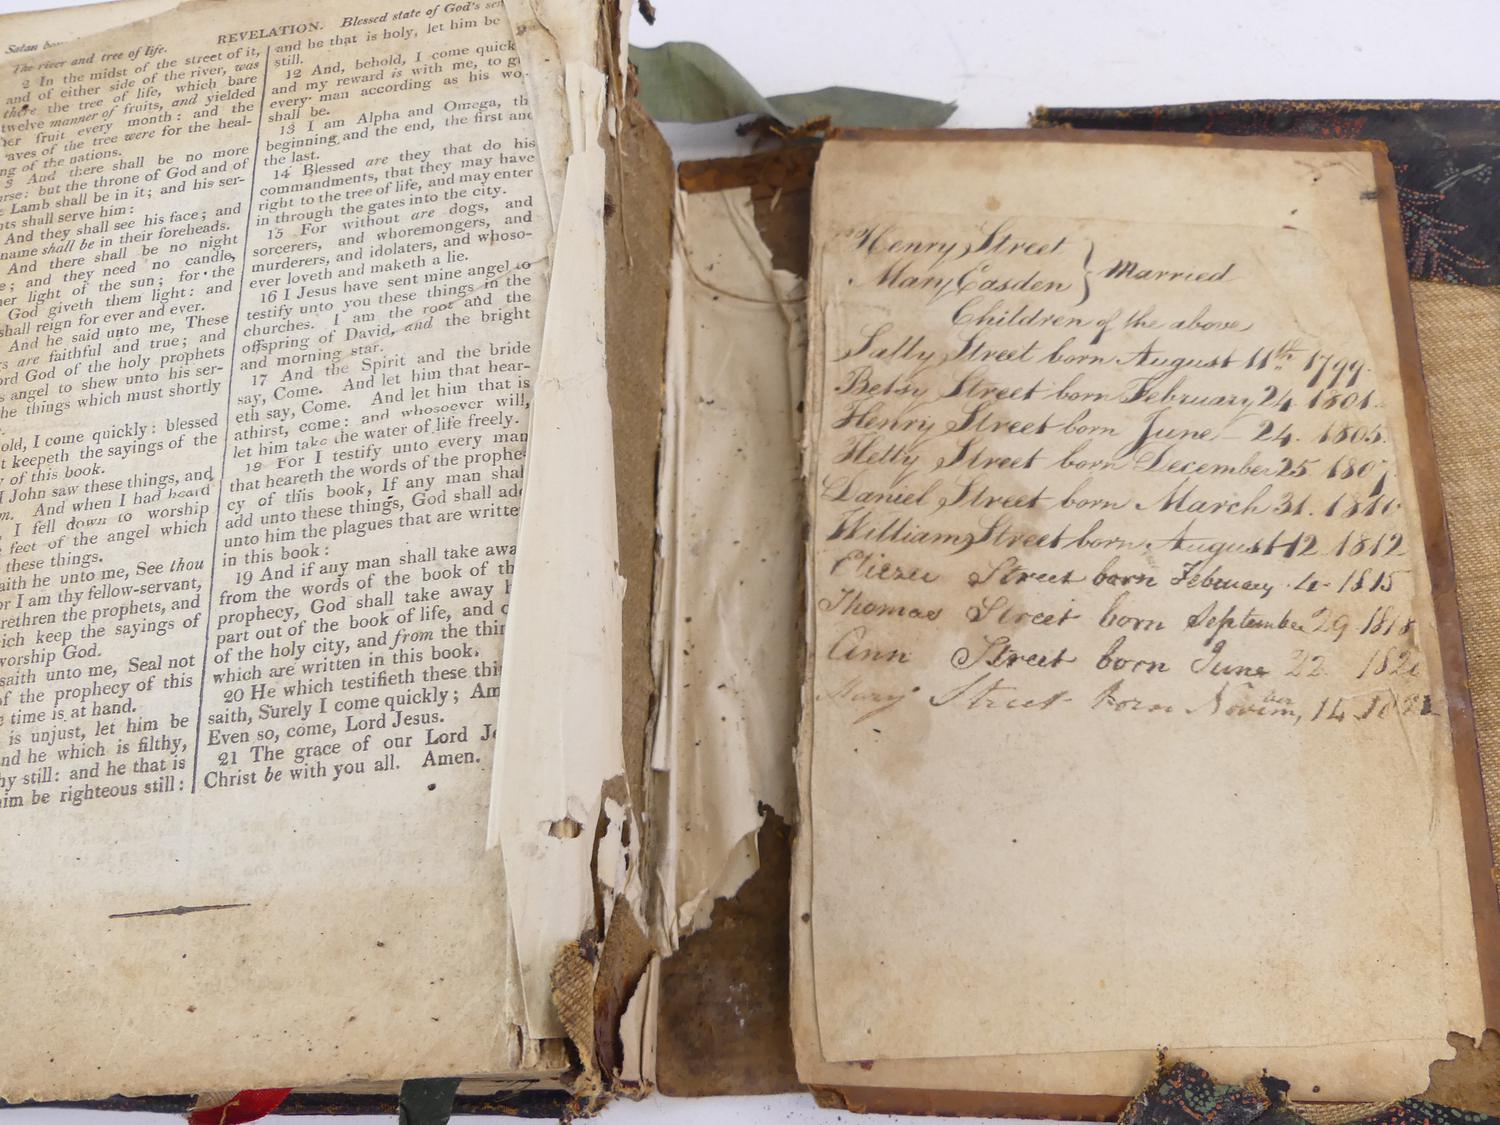 Satan
REVELATION.
Blessed state of God's
The river and tree of life.
2 In the midst of the street of it,
and of either side of the river, was
there the tree of life, which bare
twelve manner of fruits, and yielded
her fruit every month: and the
aves of the tree were for the heal-
ng of the nations.
3 And there shall be no more
rse: but the throne of God and of
e Lamb shall be in it; and his ser-
nts shall serve him:
And they shall see his face; and
name shall be in their foreheads.
And there shall be no night
e; and they need no candle,
her light of the sun; for the
God giveth them light: and
shall reign for ever and ever.
And he said unto me, These
s are faithful and true; and
ord God of the holy prophets
s angel to shew unto his ser-
he things which must shortly
old, I come quickly: blessed
t keepeth the sayings of the
y of this book.
I John saw these things, and
m. And when I had heard
, I fell down to worship
feet of the angel which
these things.
aith he unto me, See thou
or I am thy fellow-servant,
rethren the prophets, and
ich keep the sayings of
worship God.
saith unto me, Seal not
of the prophecy of this
time is at hand.
is unjust, let him be
nd he which is filthy,
hy still: and he that is
him be righteous still:
and he that is holy, let him be
still.
12 And, behold, I come quick
and my reward is with me, to g
every man according as his wo
shall be.
13 I am Alpha and Omega, th
beginning and the end, the first and
the last.
14 Blessed are they that do his
commandments, that they may have
right to the tree of life, and may enter
in through the gates into the city.
15 For without are dogs, and
sorcerers, and whoremongers, and
murderers, and idolaters, and whoso-
ever loveth and maketh a lie.
16 I Jesus have sent mine angel to
testify unto you these things in the
churches. I am the root and the
offspring of David, and the bright
and morning star.
17 And the Spirit and the bride
say, Come. And let him that hear-
eth say, Come. And let him that is
athirst, come: and whosoever will,
let him take the water of life freely.
18 For I testify unto every man
that heareth the words of the prophe-
cy of this book, If any man shal
add unto these things, God shall add
unto him the plagues that are writte
in this book:
19 And if any man shall take awa
from the words of the book of th
prophecy, God shall take away h
part out of the book of life, and o
of the holy city, and from the thin
which are written in this book.
20 He which testifieth these thi
saith, Surely I come quickly; Am
Even so, come, Lord Jesus.
21 The grace of our Lord Je
Christ be with you all. Amen.
Henry Street
Mary Easden } Married
Children of the above
Sally Street born August 11th 1799.
Betsy Street born February 24 1801.
Henry Street born June 24. 1805.
Hetty Street born December 25 1807
Daniel Street born March 31. 1810
William Street born August 12 1812
Eliezer Street born February 4 1815
Thomas Street born September 29 1818
Ann Street born June 22 182
Mary Street born Novem,ber 14